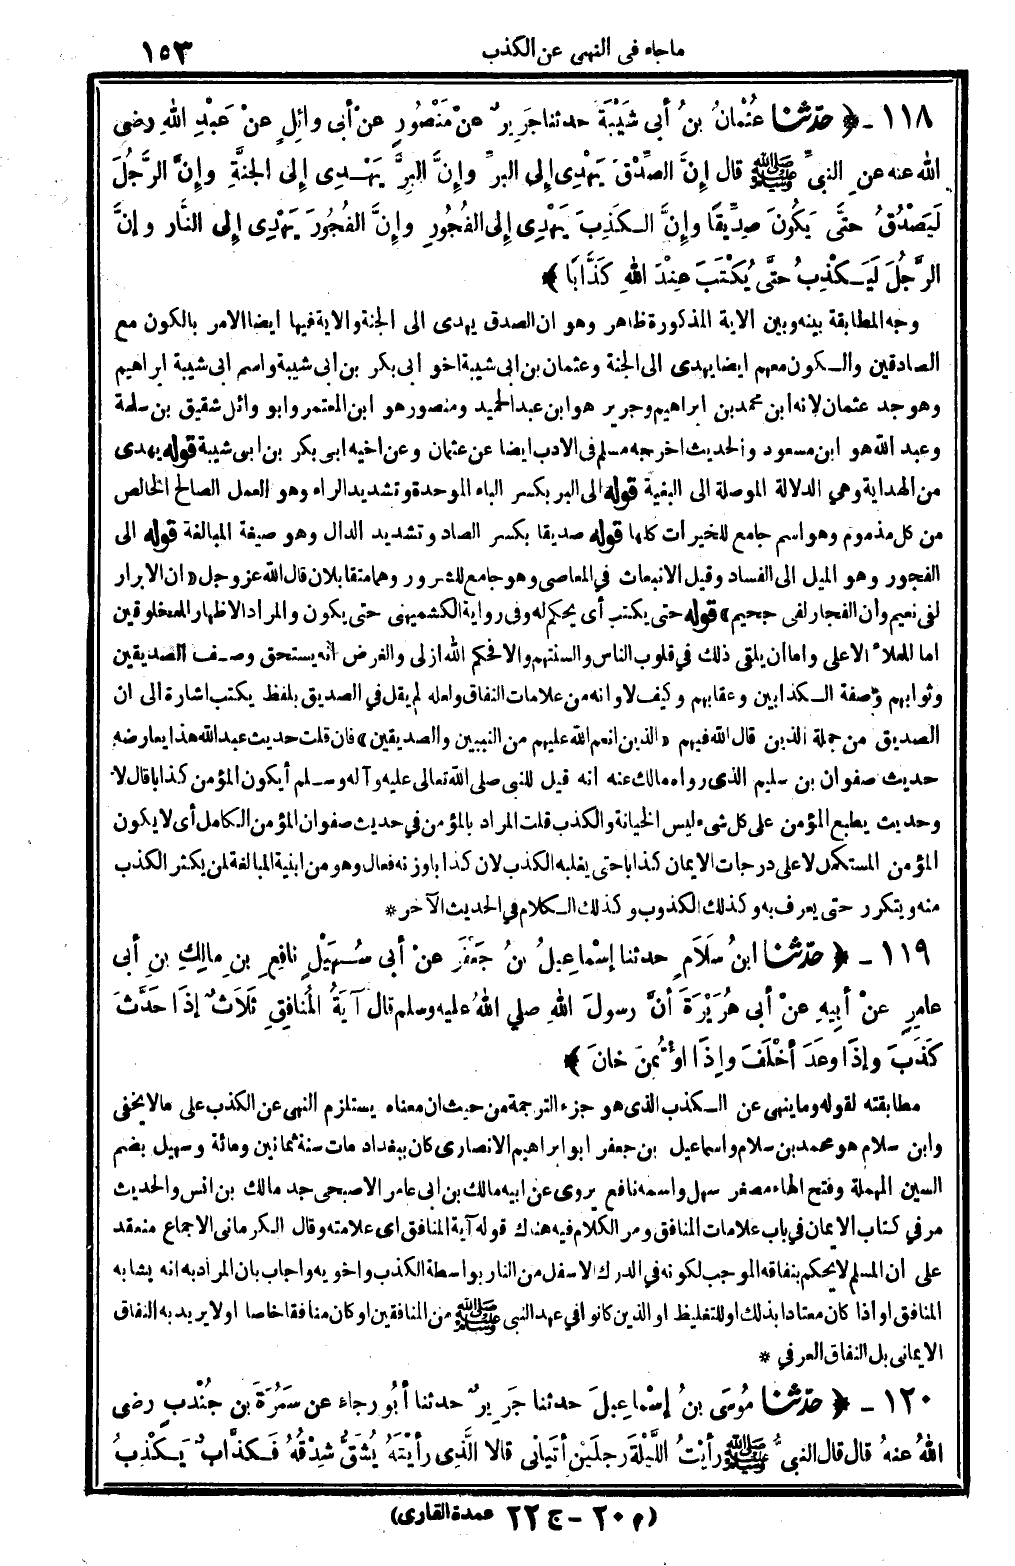 ماجاء فى النهى عن الكذب ١٥٣
١١٨ - ﴿ حدّثنا عُثْمانُ بنُ أبى شَيْبَةَ حدثنا جَرِيرٌ عنْ مَنْصُورٍ عنْ أبى وائِلٍ عنْ عَبْدِ اللهِ رضى
الله عنه عنِ النبىِّ ﷺ قال إنَّ الصِّدْقَ يَهْدِى إلى البِرِّ وإنَّ البِرَّ يَهْدِى إلى الجنَّةِ وإنَّ الرَّجُلَ
لَيَصْدُقُ حتَّى يَكُونَ صِدِّيقًا وإنَّ الكَذِبَ يَهْدِى إلى الفُجُورِ وإنَّ الفُجُورَ يَهْدِى إلى النَّار وإنَّ
الرَّجُلَ لَيَكْذِبُ حتَّى يُكْتَبَ عِنْدَ اللهِ كَذَّابًا ﴾
وجه المطابقة بينه وبين الآية المذكورة ظاهر وهو ان الصدق يهدى الى الجنة والاية فيها ايضا الامر بالكون مع
الصادقين والكون معهم ايضا يهدى الى الجنة وعثمان بن ابى شيبة اخو ابى بكر بن ابى شيبة واسم ابى شيبة ابراهيم
وهو جد عثمان لانه ابن محمد بن ابراهيم وجرير هو ابن عبد الحميد ومنصور هو ابن المعتمر وابو وائل شقيق بن سلمة
وعبد الله هو ابن مسعود والحديث اخرجه مسلم فى الادب ايضا عن عثمان وعن اخيه ابى بكر بن ابى شيبة قوله يهدى
من الهداية وهي الدلالة الموصلة الى البغية قوله الى البر بكسر الباء الموحدة وتشديد الراء وهو العمل الصالح الخالص
من كل مذموم وهو اسم جامع للخيرات كلها قوله صديقا بكسر الصاد وتشديد الدال وهو صيغة المبالغة قوله الى
الفجور وهو الميل الى الفساد وقيل الانبعاث في المعاصى وهو جامع للشرور وهما متقابلان قال الله عز وجل «ان الابرار
لفى نعيم وأن الفجار لفى جحيم» قوله حتى يكتب أى يحكم له وفى رواية الكشميهنى حتى يكون والمراد الاظهار للمخلوقين
اما للملاء الاعلى واما أن يلقى ذلك في قلوب الناس والسنتهم والا فحكم الله ازلى والغرض انه يستحق وصف الصديقين
وثوابهم وصفة الكذابين وعقابهم وكيف لا وانه من علامات النفاق ولعله لم يقل في الصديق بلفظ يكتب اشارة الى ان
الصديق من جملة الذين قال الله فيهم «الذين انعم الله عليهم من النبيين والصديقين» فان قلت حديث عبد الله هذا يعارضه
حديث صفوان بن سليم الذى رواه مالك عنه انه قيل للنبى صلى الله تعالى عليه وآله وسلم أيكون المؤمن كذابا قال لا
وحديث يطبع المؤمن على كل شىء ليس الخيانة والكذب قلت المراد بالمؤمن في حديث صفوان المؤمن الكامل أى لا يكون
المؤمن المستكمل لاعلى درجات الايمان كذابا حتى يغلبه الكذب لان كذابا وزنه فعال وهو من ابنية المبالغة لمن يكثر الكذب
منه ويتكرر حتى يعرف به وكذلك الكذوب وكذلك الكلام في الحديث الآخر *
١١٩ - ﴿ حدّثنا ابنُ سَلَامٍ حدثنا إسْماعِيلُ بنُ جَعْفَرٍ عنْ أبى سُهَيْلٍ نافِعِ بنِ مالِكِ بنِ أبى
عامِرٍ عنْ أبِيهِ عنْ أبى هُرَيْرَةَ أنَّ رسولَ اللهِ صلي اللهُ عليه وسلم قال آيَةُ المُنافِقِ ثَلَاثٌ إذَا حَدَّثَ
كَذَبَ وإذَا وعَدَ أخْلَفَ وإذَا اوْتُمِنَ خانَ ﴾
مطابقته لقوله وما ينهى عن الكذب الذى هو جزء الترجمة من حيث ان معناه يستلزم النهى عن الكذب على مالا يخفى
وابن سلام هو محمد بن سلام واسماعيل بن جعفر ابو ابراهيم الانصارى كان ببغداد مات سنة ثمانين ومائة وسهيل بضم
السين المهملة وفتح الهاء مصغر سهل واسمه نافع يروى عن ابيه مالك بن ابى عامر الاصبحى جد مالك بن انس والحديث
مر في كتاب الايمان في باب علامات المنافق ومر الكلام فيه هناك قوله آية المنافق اى علامته وقال الكرمانى الاجماع منعقد
على أن المسلم لا يحكم بنفاقه الموجب لكونه في الدرك الاسفل من النار بواسطة الكذب واخويه واجاب بان المراد به انه يشابه
المنافق او اذا كان معتادا بذلك او للتغليظ او الذين كانوا في عهد النبى ﷺ من المنافقين او كان منافقا خاصا او لا يريد به النفاق
الايمانى بل النفاق العرفي *
١٢٠ - ﴿ حدّثنا مُوسَى بنُ إسْماعِيلَ حدثنا جَرِيرٌ حدثنا أبُو رجاء عن سَمُرَةَ بنِ جُنْدبٍ رضى
اللهُ عنهُ قال قال النبىُّ ﷺ رأيْتُ اللَّيْلَةَ رجلَيْنِ أتَيانى قالا الَّذِى رأيْتَهُ يُشَقُّ شِدْقُهُ فَكذَّابٌ يَكْذِبُ
(م ٢٠ - ج ٢٢ عمدة القارى)